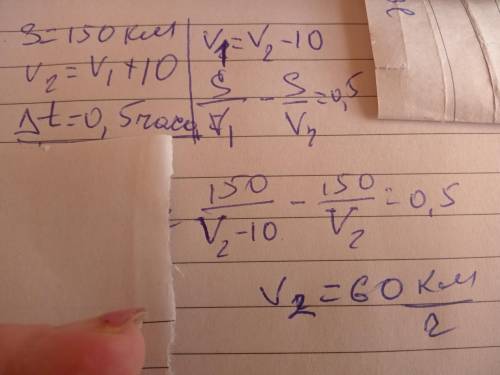 S=150 км
V₂=V₁+10
Δt=0,5 часа
V₁=V₂-10
S/V₁ - S/V₂=0,5
150/(V₂-10) - 150/V₂=0,5
V₂=60 км/г